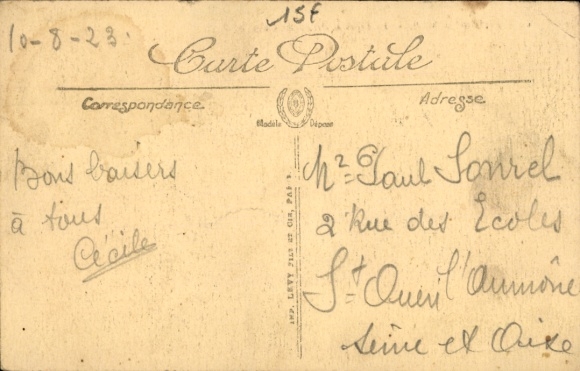 15F
10-8-23.
Carte Postale
Correspondance
Adresse
Modèle Déposé
Bons baisers
à tous
Cécile
IMP. LÉVY FILS ET CIE, PARIS
Mr Paul Sonrel
2 Rue des Ecoles
St Ouen l'Aumône
Seine et Oise